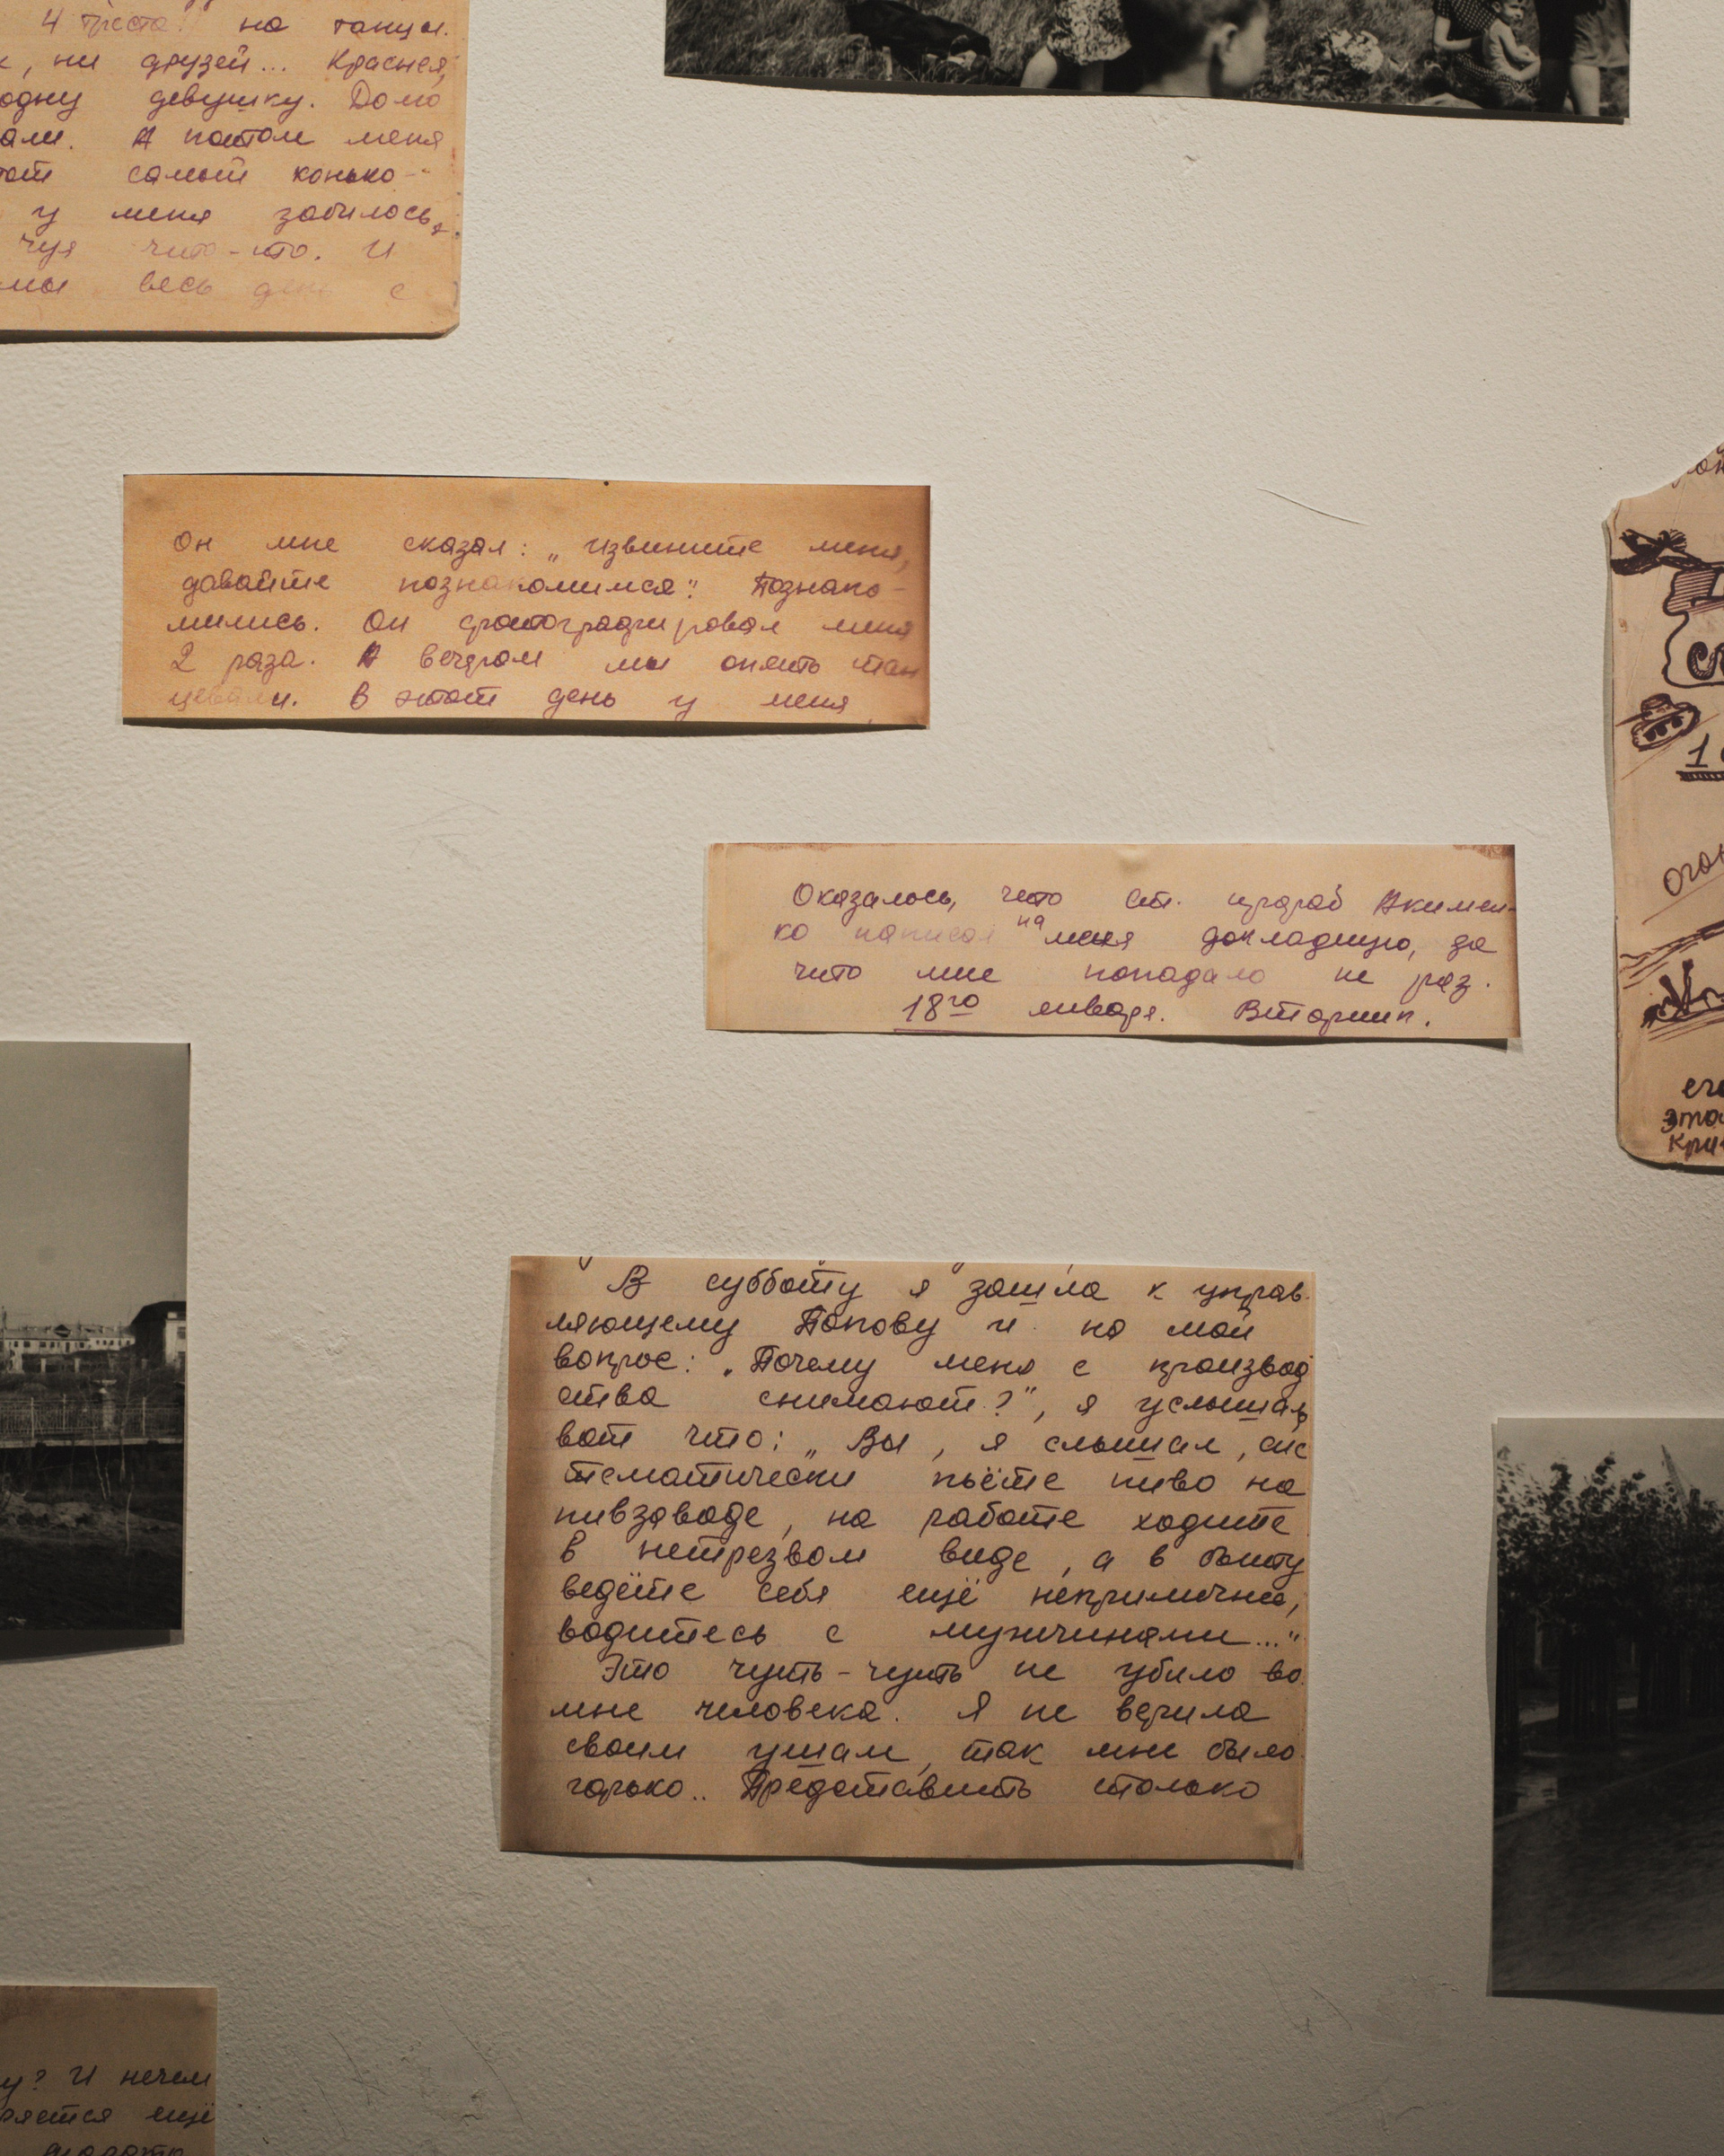 4 треста на танцы.
, ни друзей... Краснея,
одну девушку. Домо
али. А потом меня
тот самый конько-
у меня забилось,
чуя что-то. И
мы весь день с
Он мне сказал: „Извините меня,
давайте познакомимся". Познако-
мились. Он сфотографировал меня
2 раза. А вечером мы опять тан
цевали. В этот день у меня
Оказалось, что ст. прораб Акимен-
ко написал на меня докладную, за
что мне попадало не раз.
18го января. Вторник.
В субботу я зашла к управ-
ляющему Попову и на мой
вопрос: „Почему меня с производ
ства снимают?", я услышала
вот что: „Вы, я слышал, сис
тематически пьёте пиво на
пивзаводе, на работе ходите
в нетрезвом виде, а в быту
ведёте себя ещё неприличнее,
водитесь с мужчинами..."
Это чуть-чуть не убило во
мне человека. Я не верила
своим ушам, так мне было
горько.. Представить столько
1
ого
его
это
кри
у? И нечем
ряется ещё